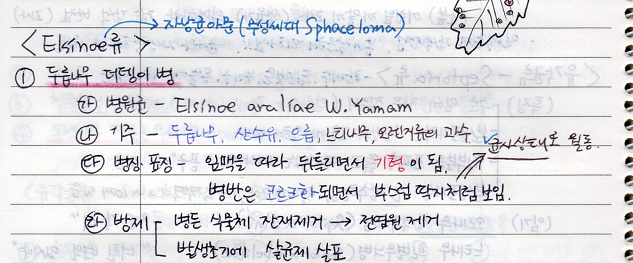 <Elsinoe류> → 자낭균아문 (무성세대 Sphaceloma)
① 두릅나무 더뎅이병
㉮ 병원균 - Elsinoe araliae W.Yamam
㉯ 기주 - 두릅나무, 산수유, 으름, 느티나무, 오렌지류의 과수
㉰ 병징 표징 - 잎맥을 따라 뒤틀리면서 기형이 됨, → 균사상태로 월동.
병반은 코르크화되면서 부스럼 딱지처럼 보임.
㉱ 방제 병든 식물체 잔재제거 → 전염원 제거
발생초기에 살균제 살포